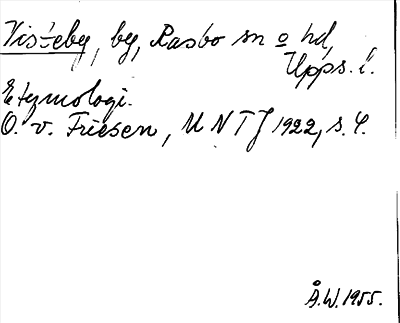 Visteby, by, Rasbo sn o hd,
Upps. l.
Etymologi.
O. v. Friesen, UNTJ 1922, s. 4.
Å.W. 1955.